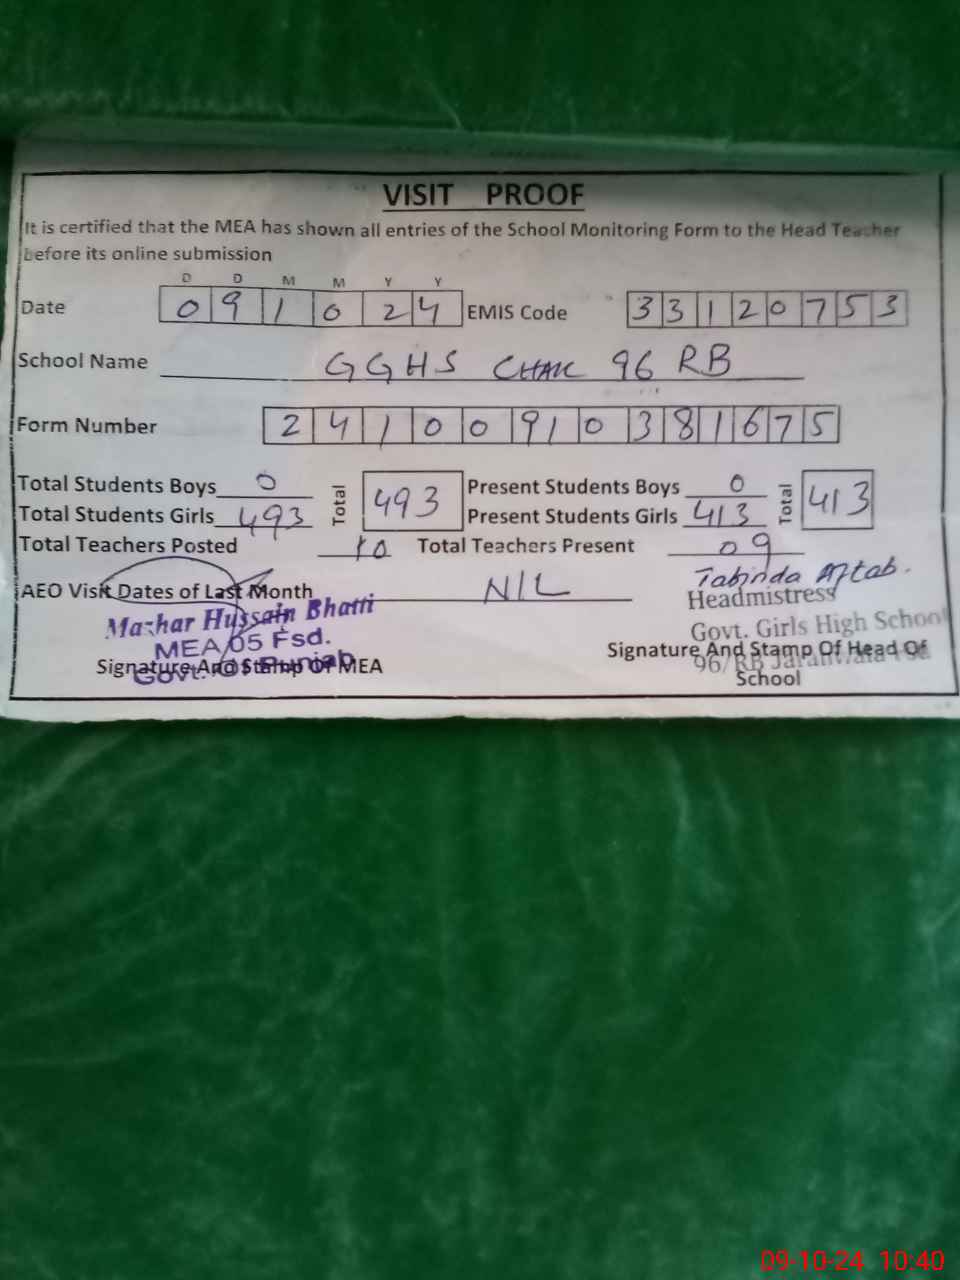 VISIT PROOF
It is certified that the MEA has shown all entries of the School Monitoring Form to the Head Teacher
before its online submission
D D M M Y Y
Date 0 9 1 0 2 4 EMIS Code 3 3 1 2 0 7 5 3
School Name GGHS CHAK 96 RB
Form Number 2 4 1 0 0 9 1 0 3 8 1 6 7 5
Total Students Boys 0 Total 493 Present Students Boys 0 Total 413
Total Students Girls 493 Present Students Girls 413
Total Teachers Posted 10 Total Teachers Present 09
AEO Visit Dates of Last Month NIL
Tabinda Aftab.
Headmistress
Govt. Girls High School
96/RB Jaranwala
Signature And Stamp Of Head Of
School
Mazhar Hussain Bhatti
MEA/05 Fsd.
Govt. Of Punjab
Signature And Stamp Of MEA
09-10-24 10:40